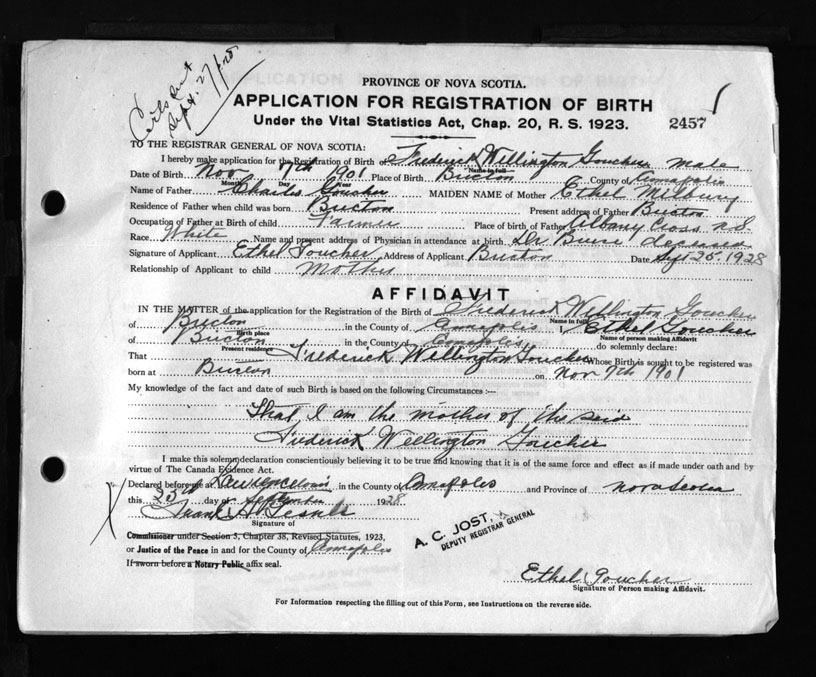 Certs sent
Sept. 27/28
PROVINCE OF NOVA SCOTIA.
APPLICATION FOR REGISTRATION OF BIRTH
Under the Vital Statistics Act, Chap. 20, R. S. 1923.
2457
TO THE REGISTRAR GENERAL OF NOVA SCOTIA:
I hereby make application for the Registration of Birth of Frederick Wellington Goucher Male
Name in full
Date of Birth Nov 7th 1901 Place of Birth County of Annapolis
Month Day Year
Name of Father Charles Goucher MAIDEN NAME of Mother Ethel Milbury
Residence of Father when child was born Present address of Father
Occupation of Father at Birth of child Farmer Place of birth of Father Albany Cross N.S.
Race White Name and present address of Physician in attendance at birth Dr deceased
Signature of Applicant Ethel Goucher Address of Applicant Date Sept 25. 1928
Relationship of Applicant to child Mother
AFFIDAVIT
IN THE MATTER of the application for the Registration of the Birth of Frederick Wellington Goucher
Name in full
of in the County of Annapolis I, Ethel Goucher
Birth place Name of person making Affidavit
of in the County of Annapolis do solemnly declare:
Present residence
That Frederick Wellington Goucher Whose Birth is sought to be registered was
born at on Nov 7th 1901
My knowledge of the fact and date of such Birth is based on the following Circumstances :—
That I am the mother of the said
Frederick Wellington Goucher
I make this solemn declaration conscientiously believing it to be true and knowing that it is of the same force and effect as if made under oath and by
virtue of The Canada Evidence Act.
Declared before me at Lawrencetown in the County of Annapolis and Province of Nova Scotia
this 25th day of September 1928
Frank H.
Signature of
Commissioner under Section 3, Chapter 38, Revised Statutes, 1923,
or Justice of the Peace in and for the County of Annapolis
If sworn before a Notary Public affix seal.
A. C. JOST,
DEPUTY REGISTRAR GENERAL
Ethel Goucher
Signature of Person making Affidavit.
For Information respecting the filling out of this Form, see Instructions on the reverse side.